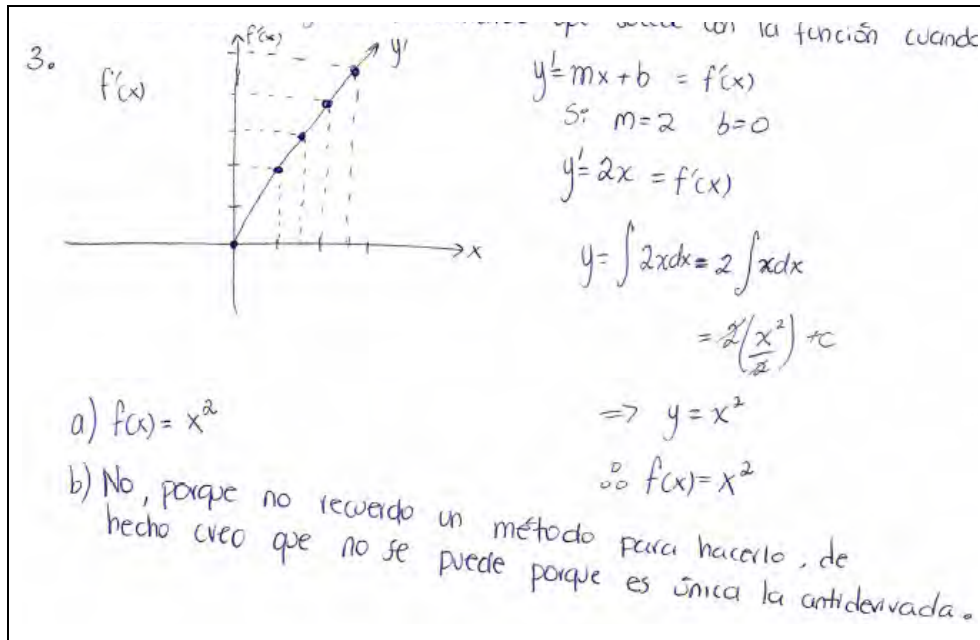 con la función cuando
3.
f'(x)
f'(x)
y'
x
y'=mx+b = f'(x)
Si m=2 b=0
y'=2x = f'(x)
y=∫2xdx=2∫xdx
=2(x²/2)+c
=> y=x²
∴ f(x)=x²
a) f(x)= x²
b) No, porque no recuerdo un método para hacerlo, de
hecho creo que no se puede porque es única la antiderivada.